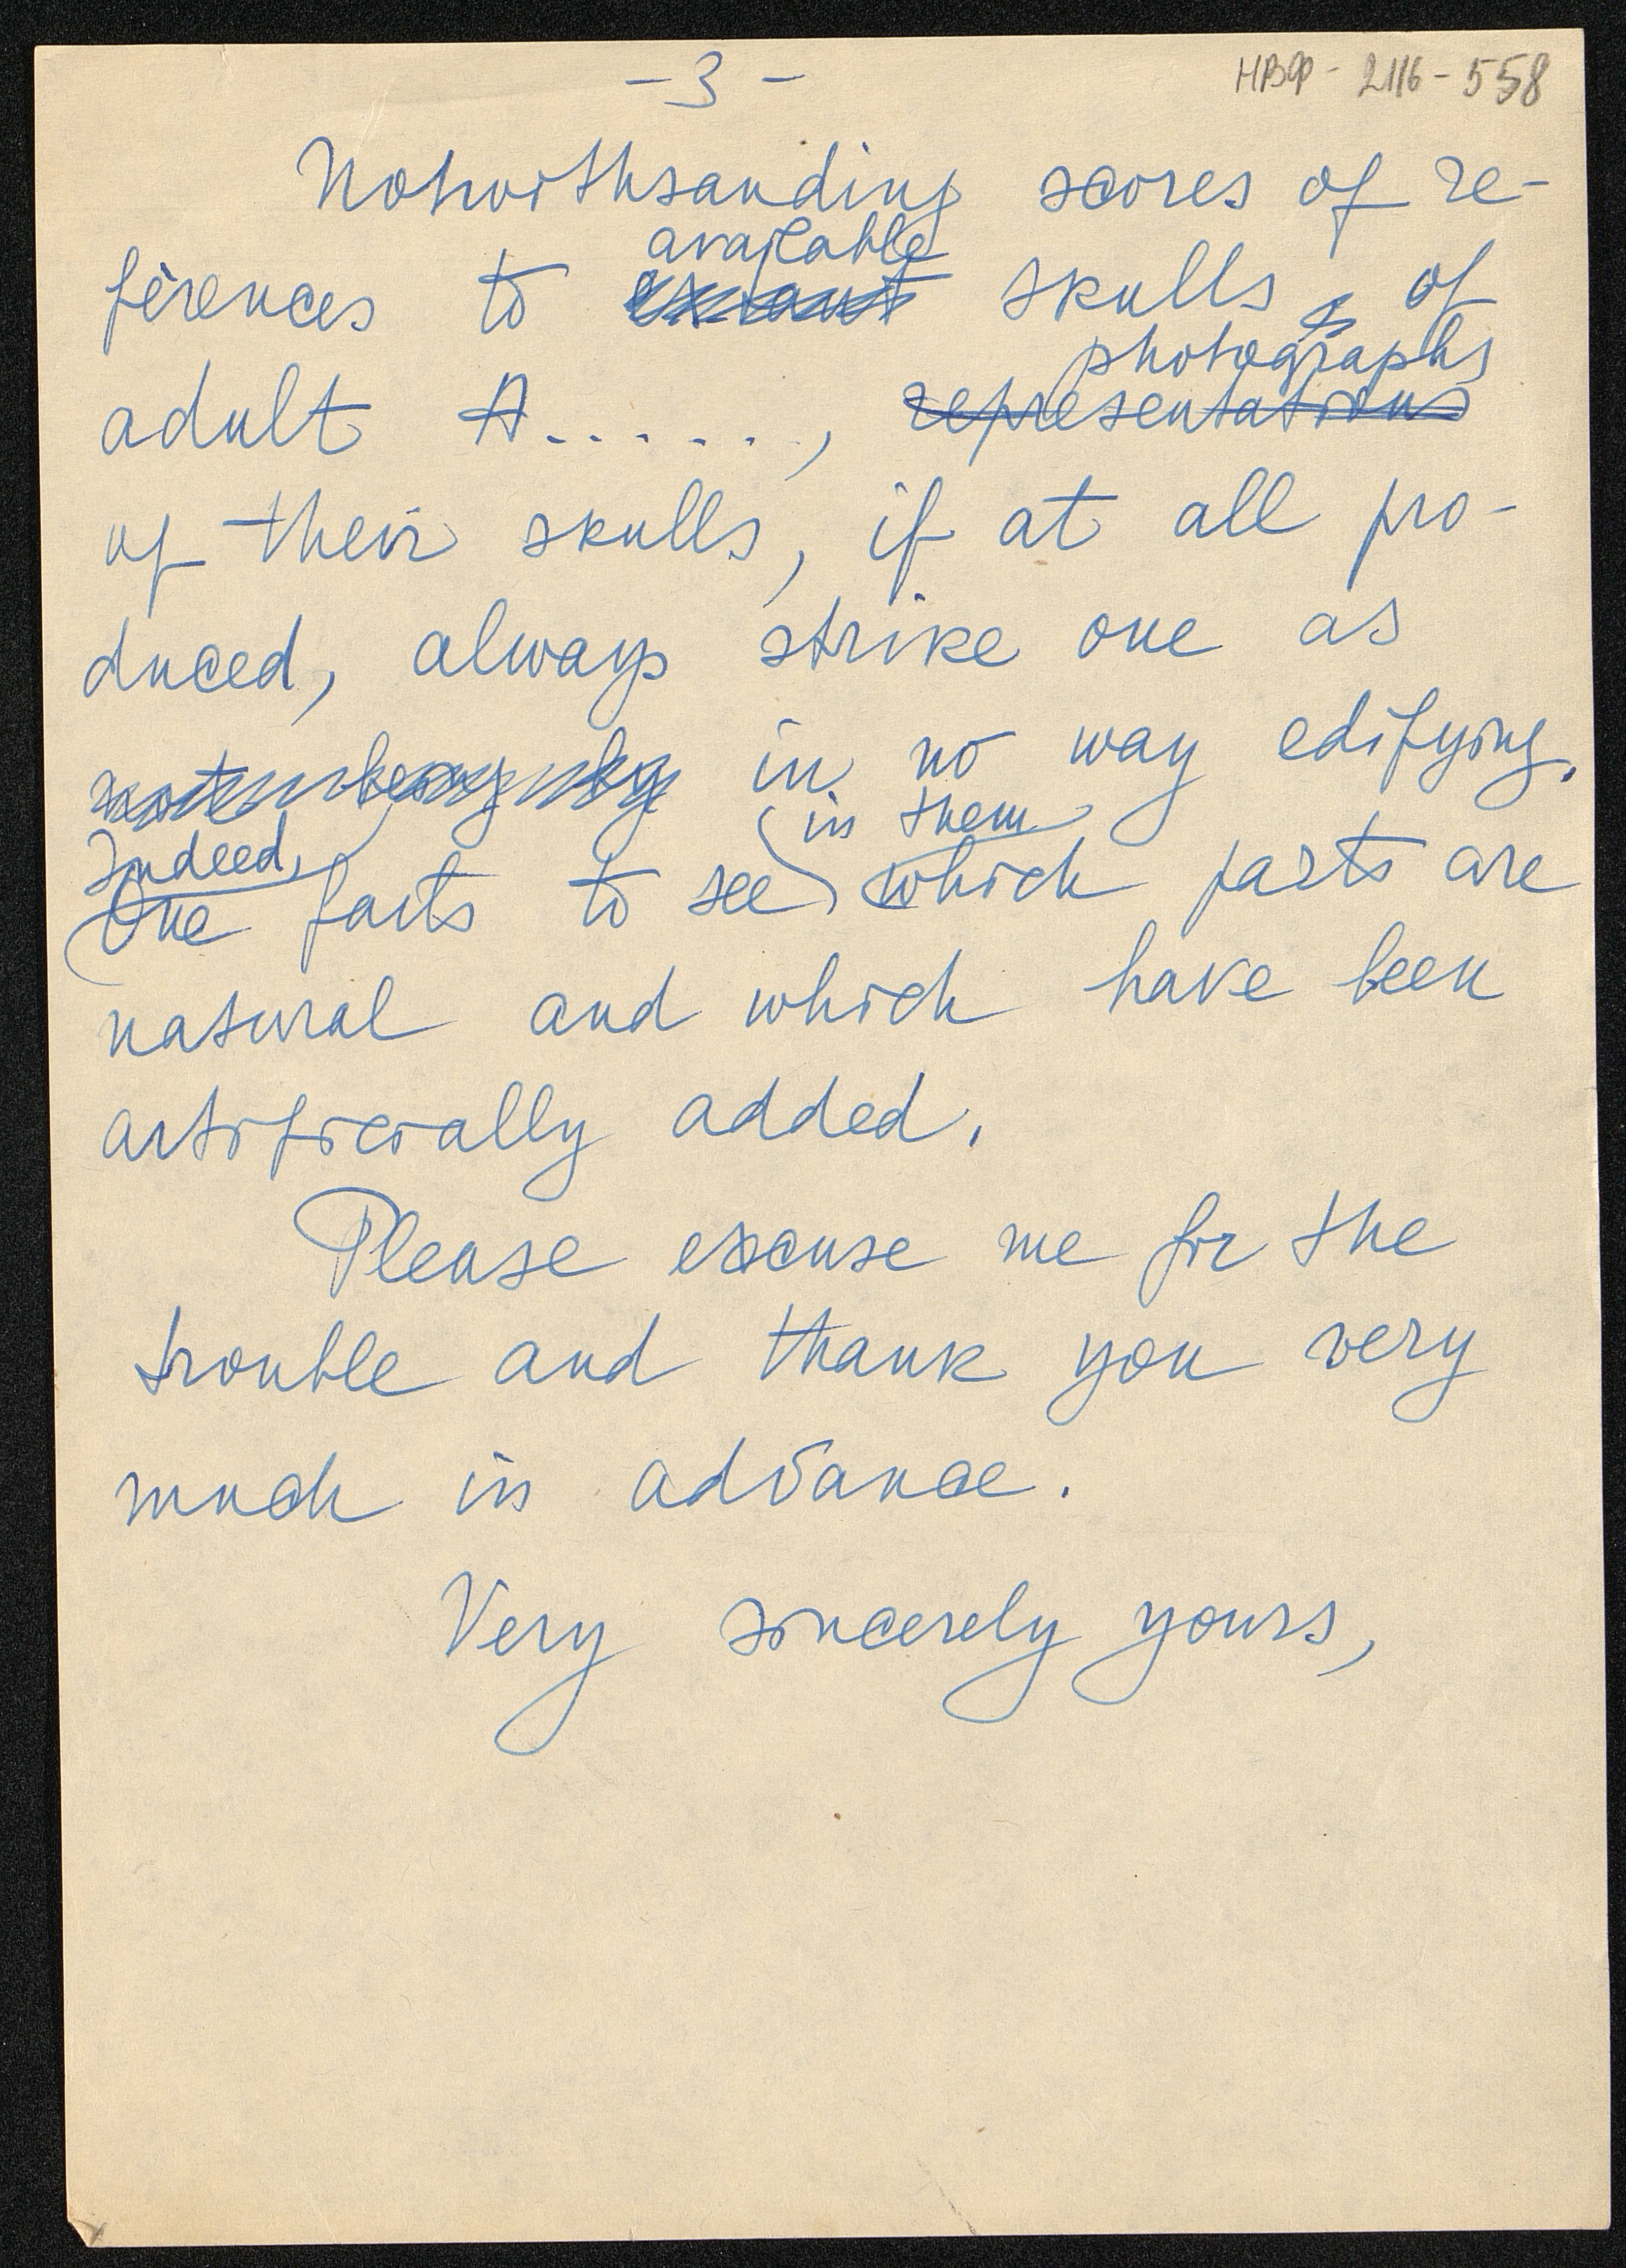 - 3 -
НВФ - 2116 - 558
Notwithsanding scores of re-
ferences to available skulls of
extant
adult A......, photographs
representations
of their skulls, if at all pro-
duced, always strike one as
in no way edifying.
Indeed, in them
One fails to see which parts are
natural and which have been
artificially added.
Please excuse me for the
trouble and thank you very
much in advance.
Very sincerely yours,